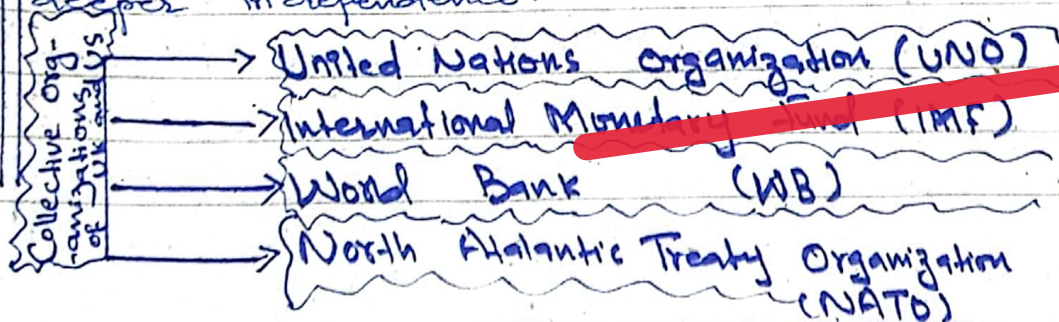 deeper independence.
Collective org-
-anizations
of UK and US
United Nations Organization (UNO)
International Monetary Fund (IMF)
World Bank (WB)
North Atalantic Treaty Organization
(NATO)